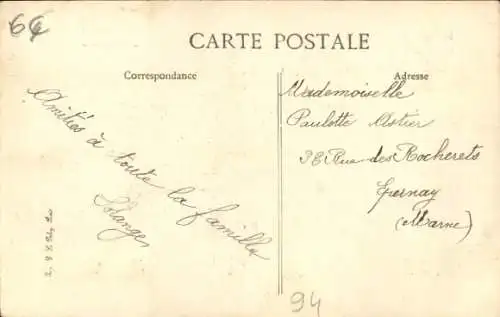 6€
CARTE POSTALE
Correspondance
Adresse
Amitiés à toute la famille
Solange
Mademoiselle
Paulette Astier
38 Rue des Rocherets
Epernay
(Marne)
94